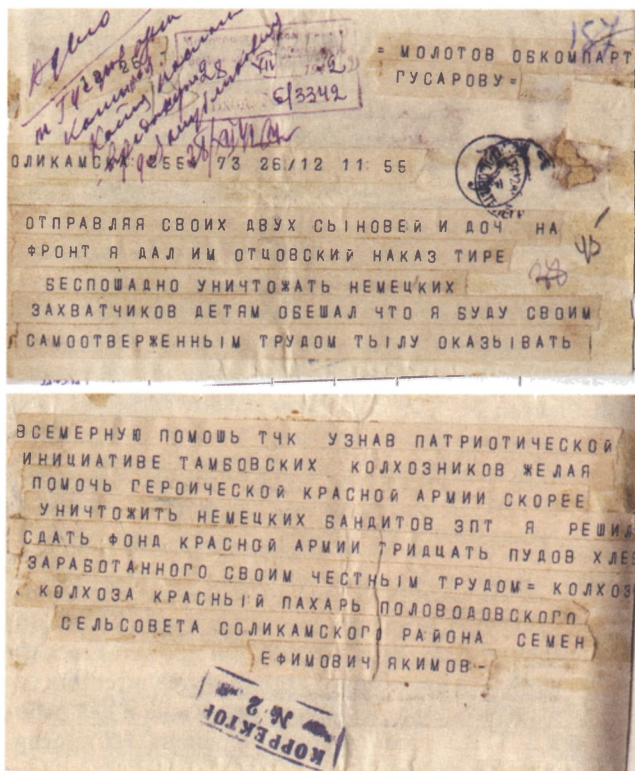 Адыло
28 XII
6/3342
28/XII 42
187
= МОЛОТОВ ОБКОМПАРТ
ГУСАРОВУ=
ОЛИКАМСКА 255 73 26/12 11 55
ОТПРАВЛЯЯ СВОИХ ДВУХ СЫНОВЕЙ И ДОЧ НА
ФРОНТ Я ДАЛ ИМ ОТЦОВСКИЙ НАКАЗ ТИРЕ
БЕСПОШАДНО УНИЧТОЖАТЬ НЕМЕЦКИХ
ЗАХВАТЧИКОВ ДЕТЯМ ОБЕШАЛ ЧТО Я БУДУ СВОИМ
САМООТВЕРЖЕННЫМ ТРУДОМ ТЫЛУ ОКАЗЫВАТЬ
ВСЕМЕРНУЮ ПОМОШЬ ТЧК УЗНАВ ПАТРИОТИЧЕСКОЙ
ИНИЦИАТИВЕ ТАМБОВСКИХ КОЛХОЗНИКОВ ЖЕЛАЯ
ПОМОЧЬ ГЕРОИЧЕСКОЙ КРАСНОЙ АРМИИ СКОРЕЕ
УНИЧТОЖИТЬ НЕМЕЦКИХ БАНДИТОВ ЗПТ Я РЕШИЛ
СДАТЬ ФОНД КРАСНОЙ АРМИИ ТРИДЦАТЬ ПУДОВ ХЛЕБ
ЗАРАБОТАННОГО СВОИМ ЧЕСТНЫМ ТРУДОМ= КОЛХОЗ
КОЛХОЗА КРАСНЫЙ ПАХАРЬ ПОЛОВОДОВСКОГО
СЕЛЬСОВЕТА СОЛИКАМСКОГО РАЙОНА СЕМЕН
ЕФИМОВИЧ ЯКИМОВ-
КОРРЕКТОР
№ 2